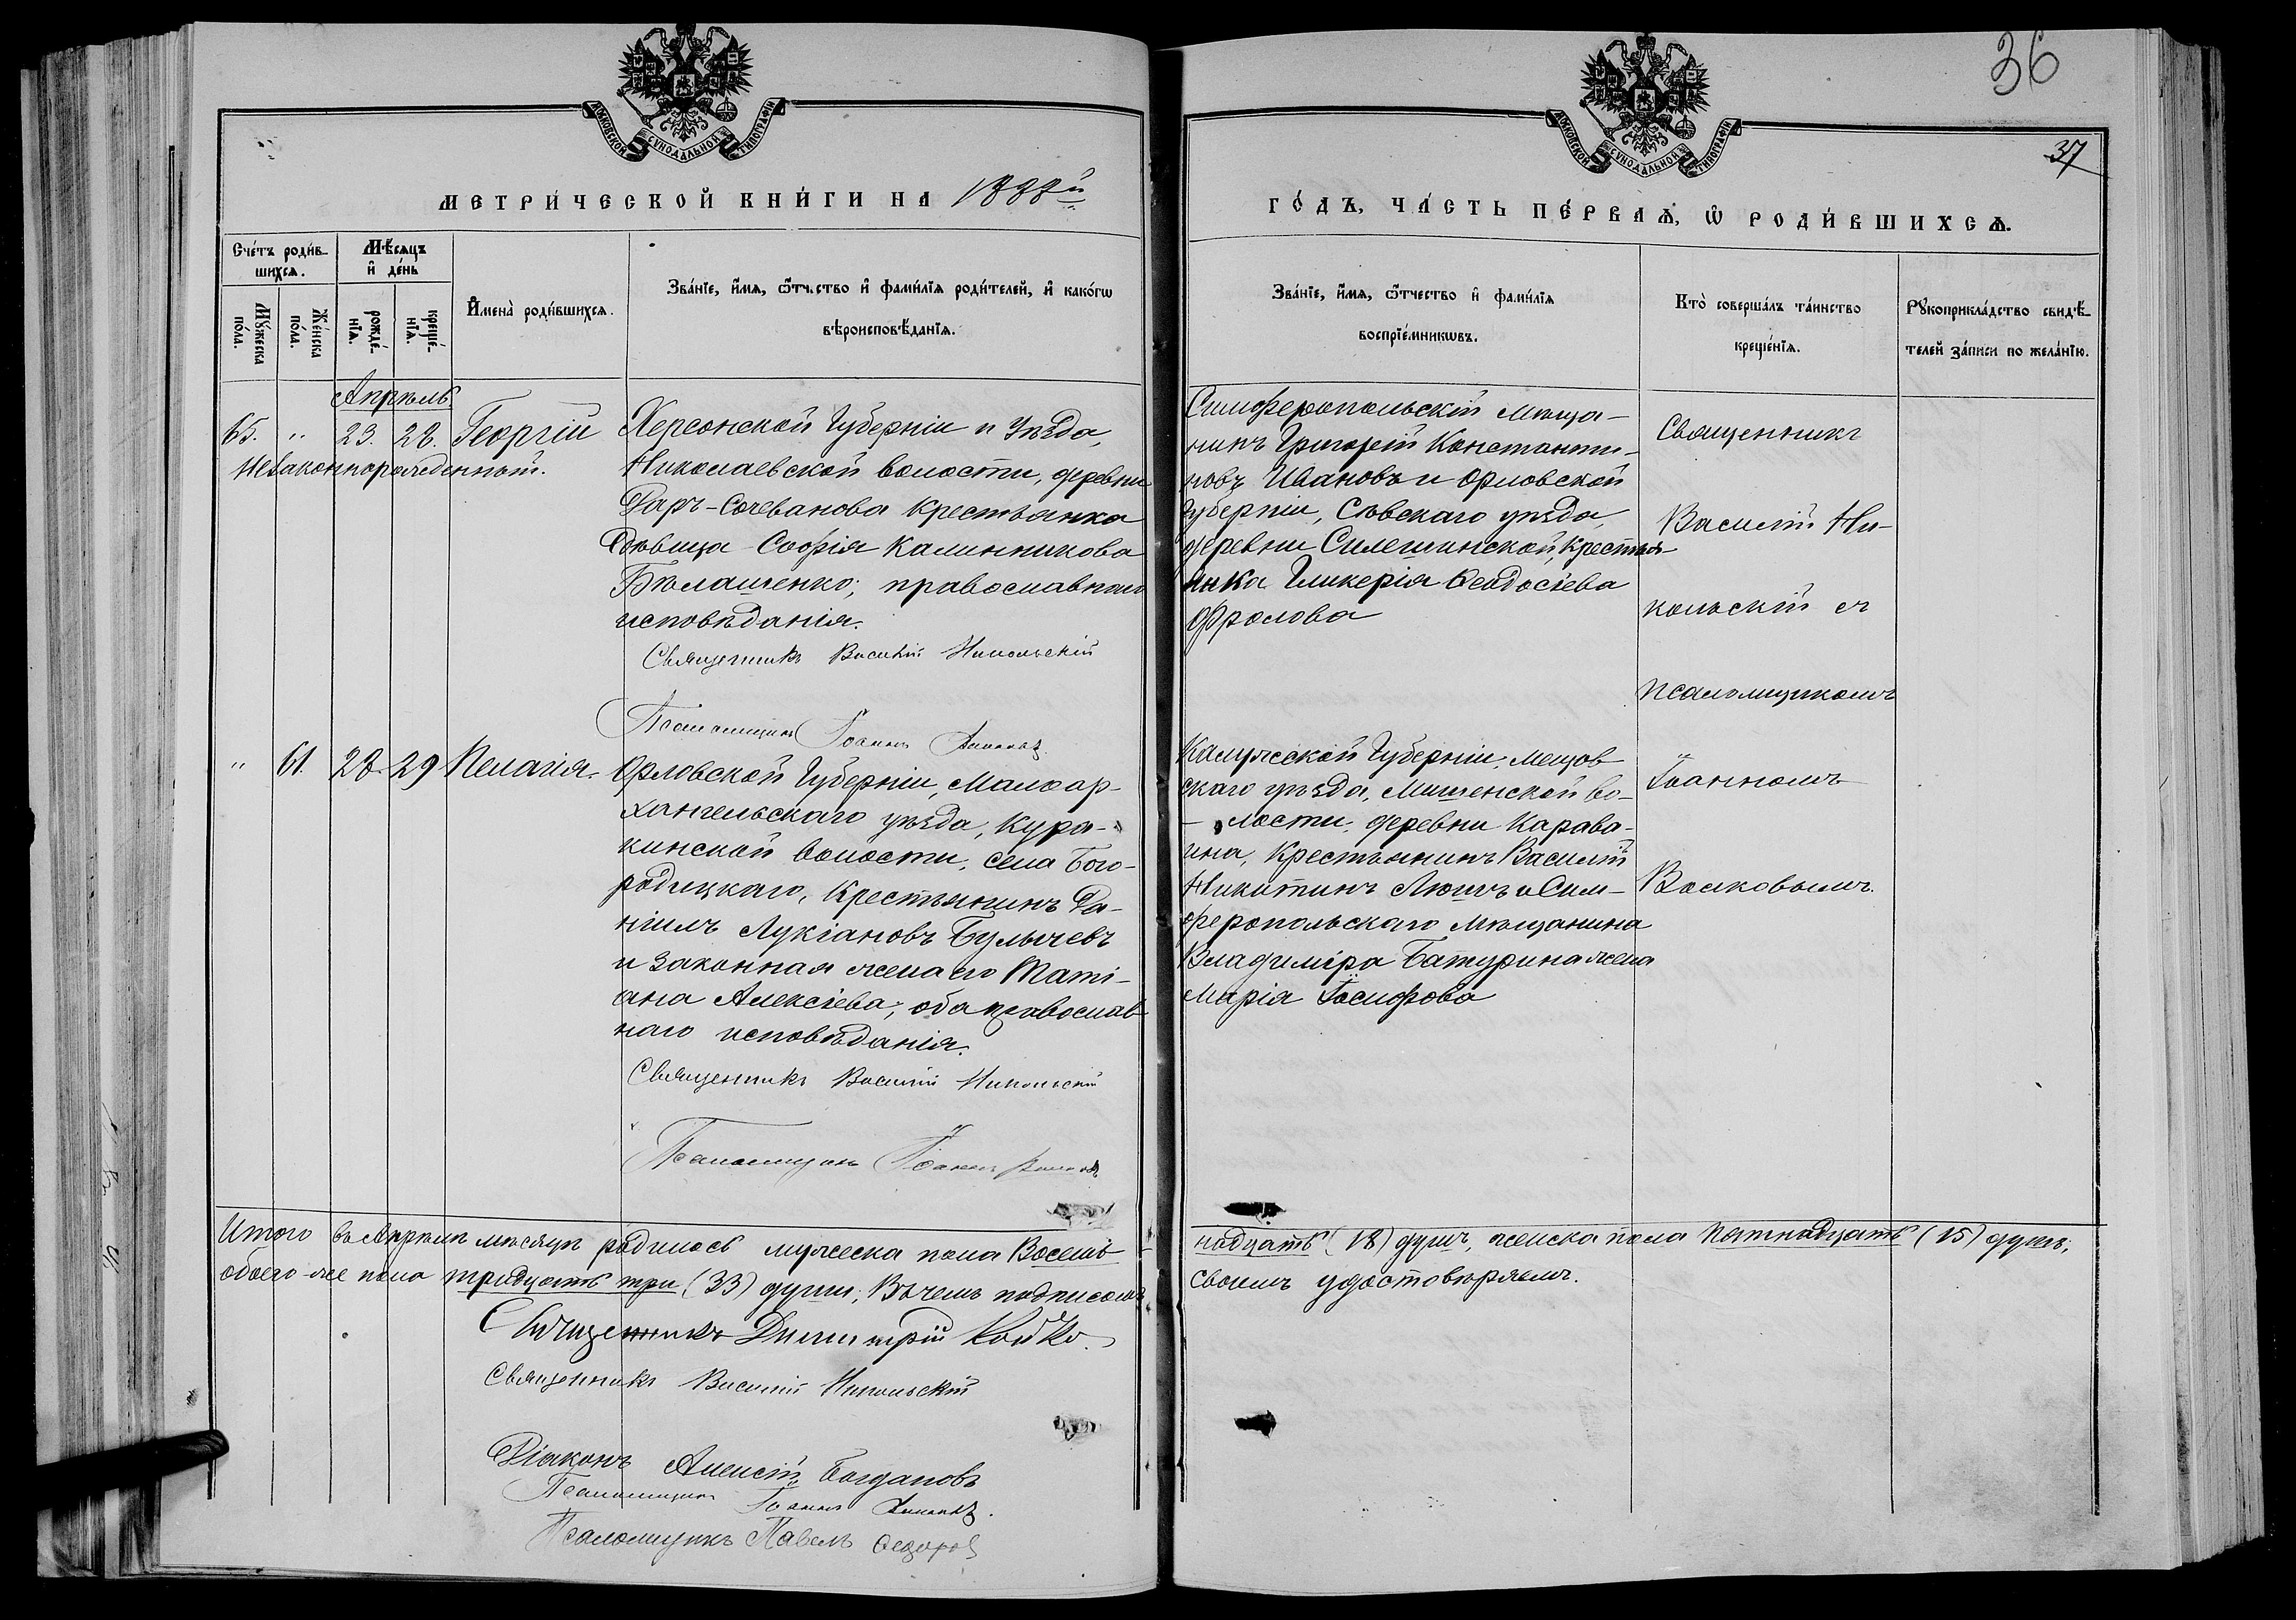 36
37
МОСКОВСКОЙ СѴНОДАЛЬНОЙ ТИПОГРАФІИ
МОСКОВСКОЙ СѴНОДАЛЬНОЙ ТИПОГРАФІИ
МЕТРИ́ЧЕСКОЙ КНИ́ГИ НА 1888й
ГО́ДЪ, ЧА́СТЬ ПЕ́РВАѦ, Ѡ РОДИ́ВШИХСѦ.
Сче́тъ роди́в-
шихсѧ.
Мꙋ́жеска по́ла.
Же́нска по́ла.
Мѣ́сѧцъ
и҆ де́нь
рожде́-
нїѧ.
креще́-
нїѧ.
И҆мена̀ роди́вшихсѧ.
Зва́нїе, и҆́мѧ, ѻ҆́тчество и҆ фами́лїѧ роди́телей, и҆ како́гѡ
вѣроисповѣ́данїѧ.
Зва́нїе, и҆́мѧ, ѻ҆́тчество и҆ фами́лїѧ
воспрїе́мникѡвъ.
Кто̀ соверша́лъ та́инство
креще́нїѧ.
Рꙋкоприкла́дство свидѣ́-
телей за́писи по жела́нїю.
Апрѣль
65. " 23. 28. Георгій
Незаконнорожденный.
Херсонской Губерніи и Уѣзда,
Николаевской волости, деревни
Сочеванова крестьянка
дѣвица Софія Калинникова
Бѣлашенко; православнаго
исповѣданія.
Священникъ Василій Никольскій
Псаломщикъ Іоаннъ Волковъ
Симферопольскій Мѣща-
нинъ Григорій Константи-
новъ Ивановъ и Орловской
Губерніи, Сѣвскаго уѣзда,
деревни Крестья-
янка Гликерія Ѳеодосіева
Фролова
Священникъ
Василій Ни-
кольскій съ
псаломщикомъ
Іоанномъ
Волковымъ.
" 61. 28. 29 Пелагія.
Орловской Губерніи, Малоар-
хангельскаго уѣзда, Кура-
кинской волости, села Бого-
родицкаго, Крестьянинъ Да-
ніилъ Лукіановъ Булычевъ
и законная жена его Таті-
ана Алексіева; оба православ-
наго исповѣданія.
Священникъ Василій Никольскій
Псаломщикъ Іоаннъ Волковъ
Калужской Губерніи, Мещов
скаго уѣзда, Мишенской во-
- лости, деревни Карава-
ина, Крестьянинъ Василій
Никитинъ и Сим-
феропольскаго Мѣщанина
Владиміра Батурина жена
Марія Іосифова
Итого въ Апрѣлѣ мѣсяцѣ родилось мужеска пола Восемь-
надцать (18) душъ, женска пола пятнадцать (15) душъ;
обоего-же пола тридцать три (33) души; Въ чемъ подписомъ
своимъ удостовѣряемъ.
Священникъ Димитрій Койко.
Священникъ Василій Никольскій
Діаконъ Алексій Богдановъ
Псаломщикъ Іоаннъ Волковъ.
Псаломщикъ Павелъ Ѳедоровъ